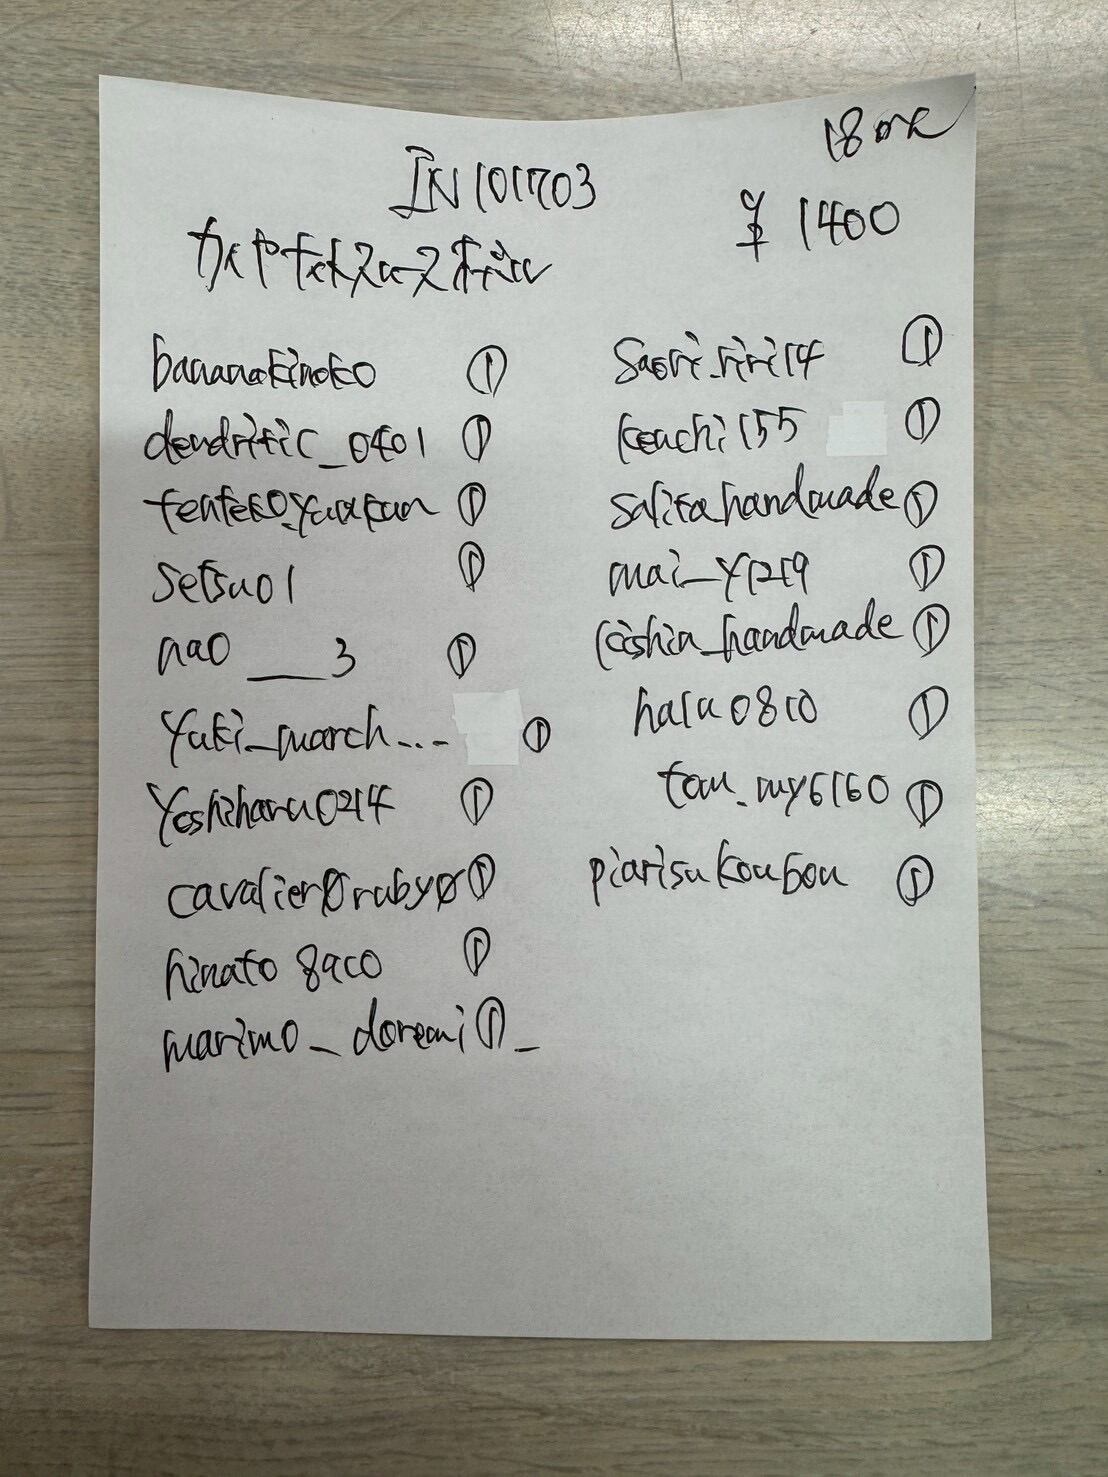 IN101703
¥1400
bananakinoko ①
dendritic_0401 ①
tenteko.yuukun ①
setsu01 ①
nao___3 ①
yuki_march... ①
yoshiharu0214 ①
cavalier0ruby0 ①
hinato8910 ①
marimo_doremi ①_
saori.riri14 ①
keachi155 ①
salisahandmade ①
mai_y1219 ①
kishin_handmade ①
haru0810 ①
tom.my6160 ①
piarisukoubou ①